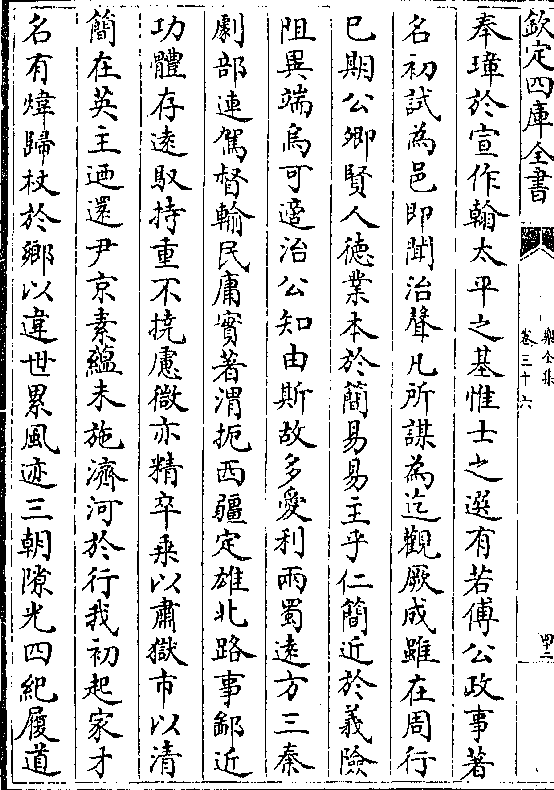 欽定四庫全書
樂全集
卷三十六
奉璋於宣作翰太平之基惟士之選有若傅公政事著
名初試為邑即聞治聲凡所謀為迄觀厥成雖在周行
已期公卿賢人徳業本於簡易易主乎仁簡近於義險
阻異端烏可適治公知由斯故多愛利兩蜀逺方三秦
劇部連駕督輸民庸實著渭扼西疆定雄北路事鄰近
功體存逺馭持重不撓慮微亦精卒乗以肅獄市以清
簡在英主迺還尹京素藴未施濟河於行我初起家才
名有煒歸杖於鄉以違世累風迹三朝隙光四紀履道